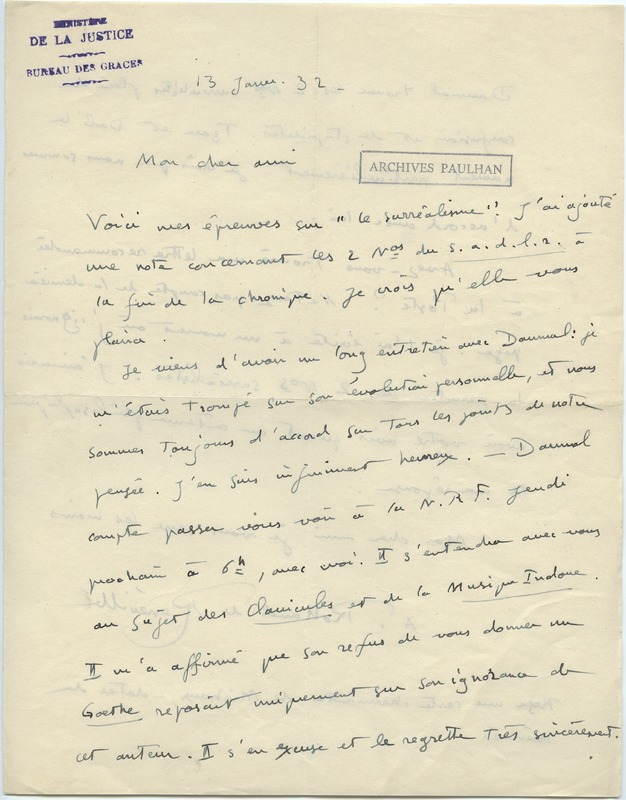 MINISTÈRE
DE LA JUSTICE
BUREAU DES GRACES
13 Janv. 32 _
Mon cher ami
ARCHIVES PAULHAN
Voici mes épreuves sur "le surréalisme". J'ai ajouté
une note concernant les 2 Nos du s.a.d.l.r. à
la fin de la chronique. Je crois qu'elle vous
plaira.
Je viens d'avoir un long entretien avec Daumal : je
m'étais trompé sur son évolution personnelle, et nous
sommes toujours d'accord sur tous les points de notre
pensée. J'en suis infiniment heureux. _ Daumal
compte passer vous voir à la N.R.F. jeudi
prochain à 6h, avec moi. Il s'entendra avec vous
au sujet des Clavicules et de la Musique Indoue.
Il m'a affirmé que son refus de vous donner un
Goethe reposait uniquement sur son ignorance de
cet auteur. Il s'en excuse et le regrette très sincèrement.